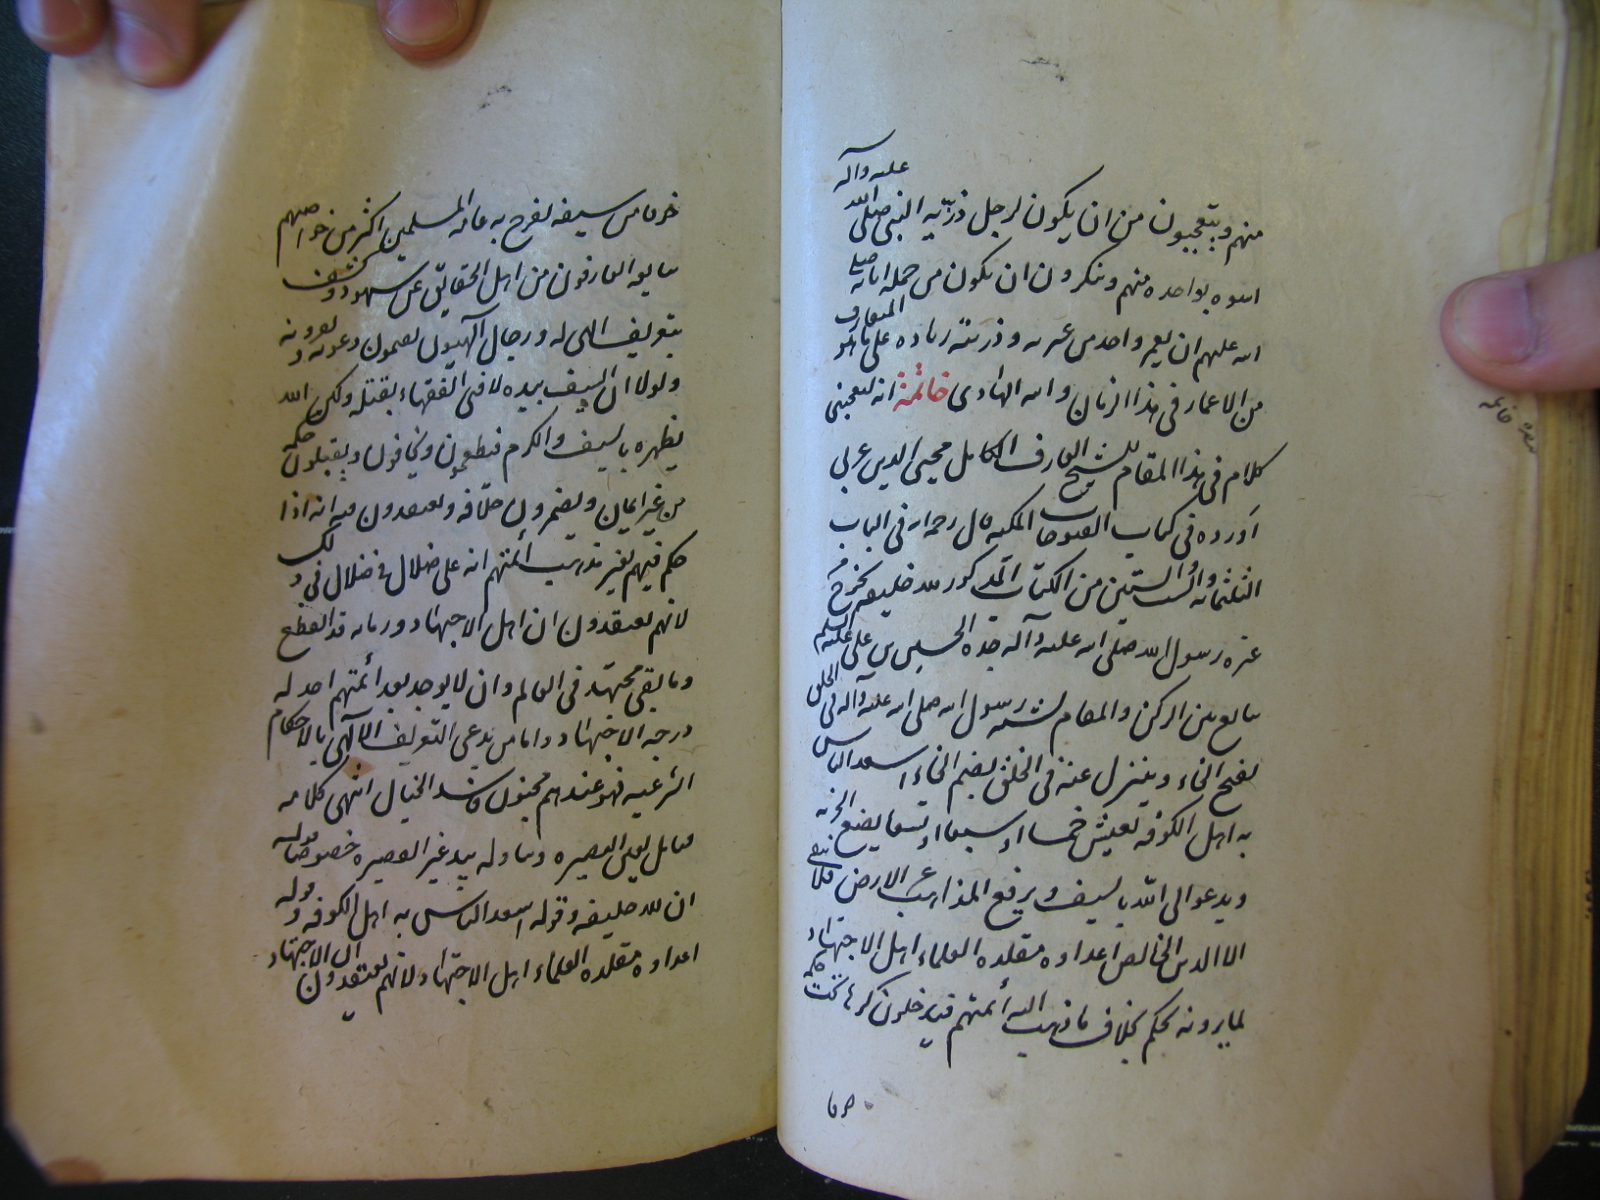 عليه وآله
منهم ويتعجبون من ان يكون لرجل ذرّية النبي صلى الله
اسوه بواحده منهم وينكرون ان يكون من جمله
الله عليهم ان يعمر واحد من عترته وذريته زياده على ما هو المتعارف
من الاعمار فى هذا الزمان والله الهادى خاتمة انه ليعجبنى
كلام فى هذا المقام للشيخ العارف الكامل محيى الدين عربى
اورده فى كتاب الفتوحات المكيه قال رحمه الله فى الباب
الثلثمائه والست والستين من الكتاب المذكور ان لله خليفه يخرج من
عتره رسول الله صلى الله عليه وآله جده الحسين بن على عليه السلم
يبايع بين الركن والمقام يشبه رسول الله صلى الله عليه وآله فى الخلق
بفتح الخاء وينزل عنه فى الخلق بضم الخاء اسعد الناس
به اهل الكوفه يعيش خمسا او سبعا او تسعا يضع الجزيه
ويدعو الى الله بالسيف ويرفع المذاهب عن الارض فلا يبقى
الا الدين الخالص اعداوه مقلده العلماء اهل الاجتهاد
لما يرونه يحكم بخلاف ما ذهب اليه أئمتهم فيدخلون كرها تحت حكمه
خوفا
خوفا من سيفه يفرح به عامه المسلمين اكثر من خواصهم
يبايعه العارفون من اهل الحقائق عن شهود وكشف
بتعريف الهى له رجال آلهيون يقيمون دعوته وينصرونه
ولولا ان السيف بيده لافتى الفقهاء بقتله ولكن الله
يظهره بالسيف والكرم فيطمعون ويخافون ويقبلون حكمه
من غير ايمان ويضمرون خلافه ويعتقدون فيه انه اذا
حكم فيهم بغير مذهب أئمتهم انه على ضلال فى ذلك
لانهم يعتقدون ان اهل الاجتهاد وزمانه قد انقطع
وما بقى مجتهد فى العالم وان لا يوجد بعد أئمتهم احد له
درجه الاجتهاد واما من يدعى التعريف الآلهى بالاحكام
الشرعيه فهو عندهم مجنون فاسد الخيال انتهى كلامه
فتامل بعين البصيره وتناوله بيد غير القصيره خصوصا قوله
ان لله خليفه وقوله اسعد الناس به اهل الكوفه وقوله
اعداوه مقلده العلماء اهل الاجتهاد لانهم يعتقدون ان الاجتهاد